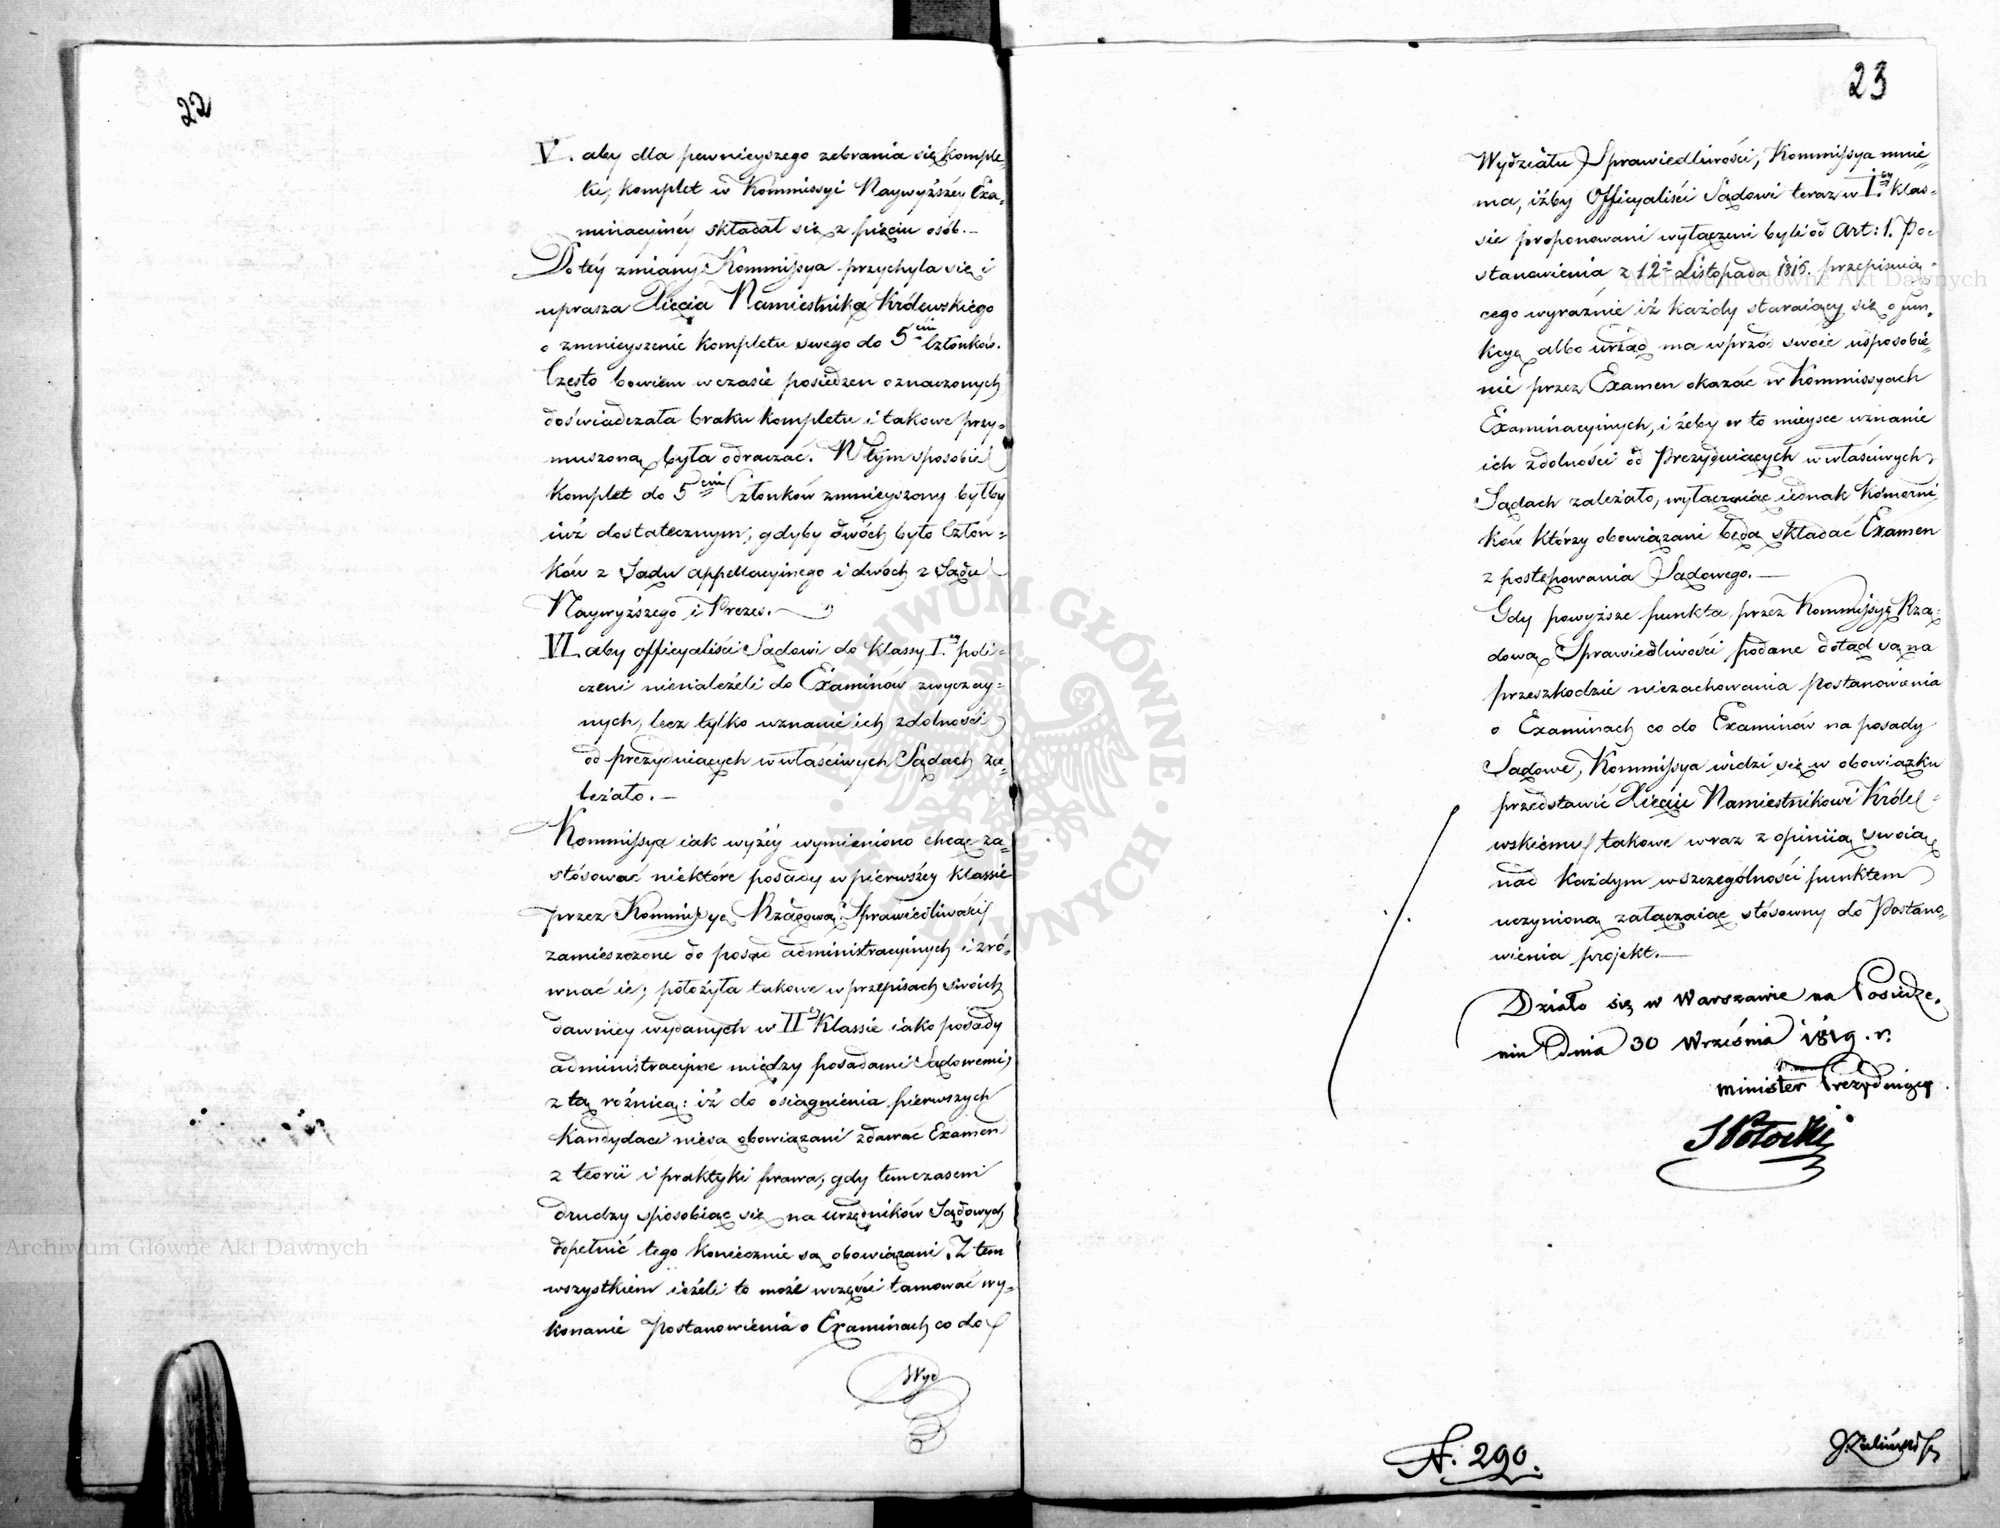 22
V. aby dla pewnieyszego zebrania się komple=
tu, komplet w Kommissyi Naywyższey Exa=
minacyiney składał się z pięciu osób.—
Do tey zmiany Kommissya przychyla się i
uprasza Xięcia Namiestnika Królewskiego
o zmnieyszenie kompletu swego do 5ciu Członków.
Często bowiem w czasie posiedzen oznaczonych
doświadczała braku kompletu i takowe przy=
muszoną była odraczać. W tym sposobie
komplet do 5ciu Członków zmnieyszony byłby
iuż dostatecznym, gdyby dwóch było Człon=
ków z Sądu appellacyinego i dwóch z Sądu
Naywyższego i Prezes.—
VI. aby officyaliści Sądowi do klassy I.ey poli=
czeni nienależeli do Examinów zwyczay=
nych, lecz tylko uznanie ich zdolności
od prezyduiących w właściwych Sądach za=
leżało.—
Kommissya iak wyżey wymieniono chcąc za=
stósować niektóre posady w pierwszey klassie
przez Kommissyę Rządową Sprawiedliwości
zamieszczone do posad administracyinych i zró=
wnać ie; położyła takowe w przepisach swoich
dawniey wydanych w II Klassie iako posady
administracyine między posadami Sądowemi
z tą różnicą: iż do osiągnienia pierwszych
Kandydaci niesą obowiązani zdawać Examen
z teorii i praktyki prawa, gdy tymczasem
drudzy sposobiąc się na urzędników Sądowych
dopełnić tego koniecznie są obowiązani. Z tem
wszystkiem ieżeli to może wczęści tamować wy=
konanie Postanowienia o Examinach co do
Wyd
23
Wydziału Sprawiedliwości, Kommissya mnie=
ma, iżby Officyaliści Sądowi teraz w I.ey klas=
sie proponowani wyłączeni byli od Art: 1. Po=
stanowienia z 12o Listopada 1816. przepisuią=
cego wyraźnie iż każdy staraiący się o fun=
kcyą albo urząd ma wprzód swoie usposobie=
nie przez Examen okazać w Kommissyach
Examinacyinych, i żeby w to mieysce uznanie
ich zdolności od Prezyduiących w właściwych
Sądach zależało, wyłączaiąc iednak Komorni
ków którzy obowiązani będą składać Examen
z postępowania Sądowego.—
Gdy powyższe punkta przez Kommissyę Rzą=
dową Sprawiedliwości podane dotąd są na
przeszkodzie niezachowania Postanowienia
o Examinach co do Examinów na posady
Sądowe, Kommissya widzi się w obowiązku
przedstawić Xięciu Namiestnikowi Króle=
wskiemu takowe wraz z opiniią swoią
nad każdym wszczególności punktem
uczynioną załączaiąc stósowny do Postano=
wienia projekt.—
Działo się w Warszawie na Posiedze=
niu Dnia 30 Września 1819. r.
Minister Prezyduiący.
S Potocki
N. 290.